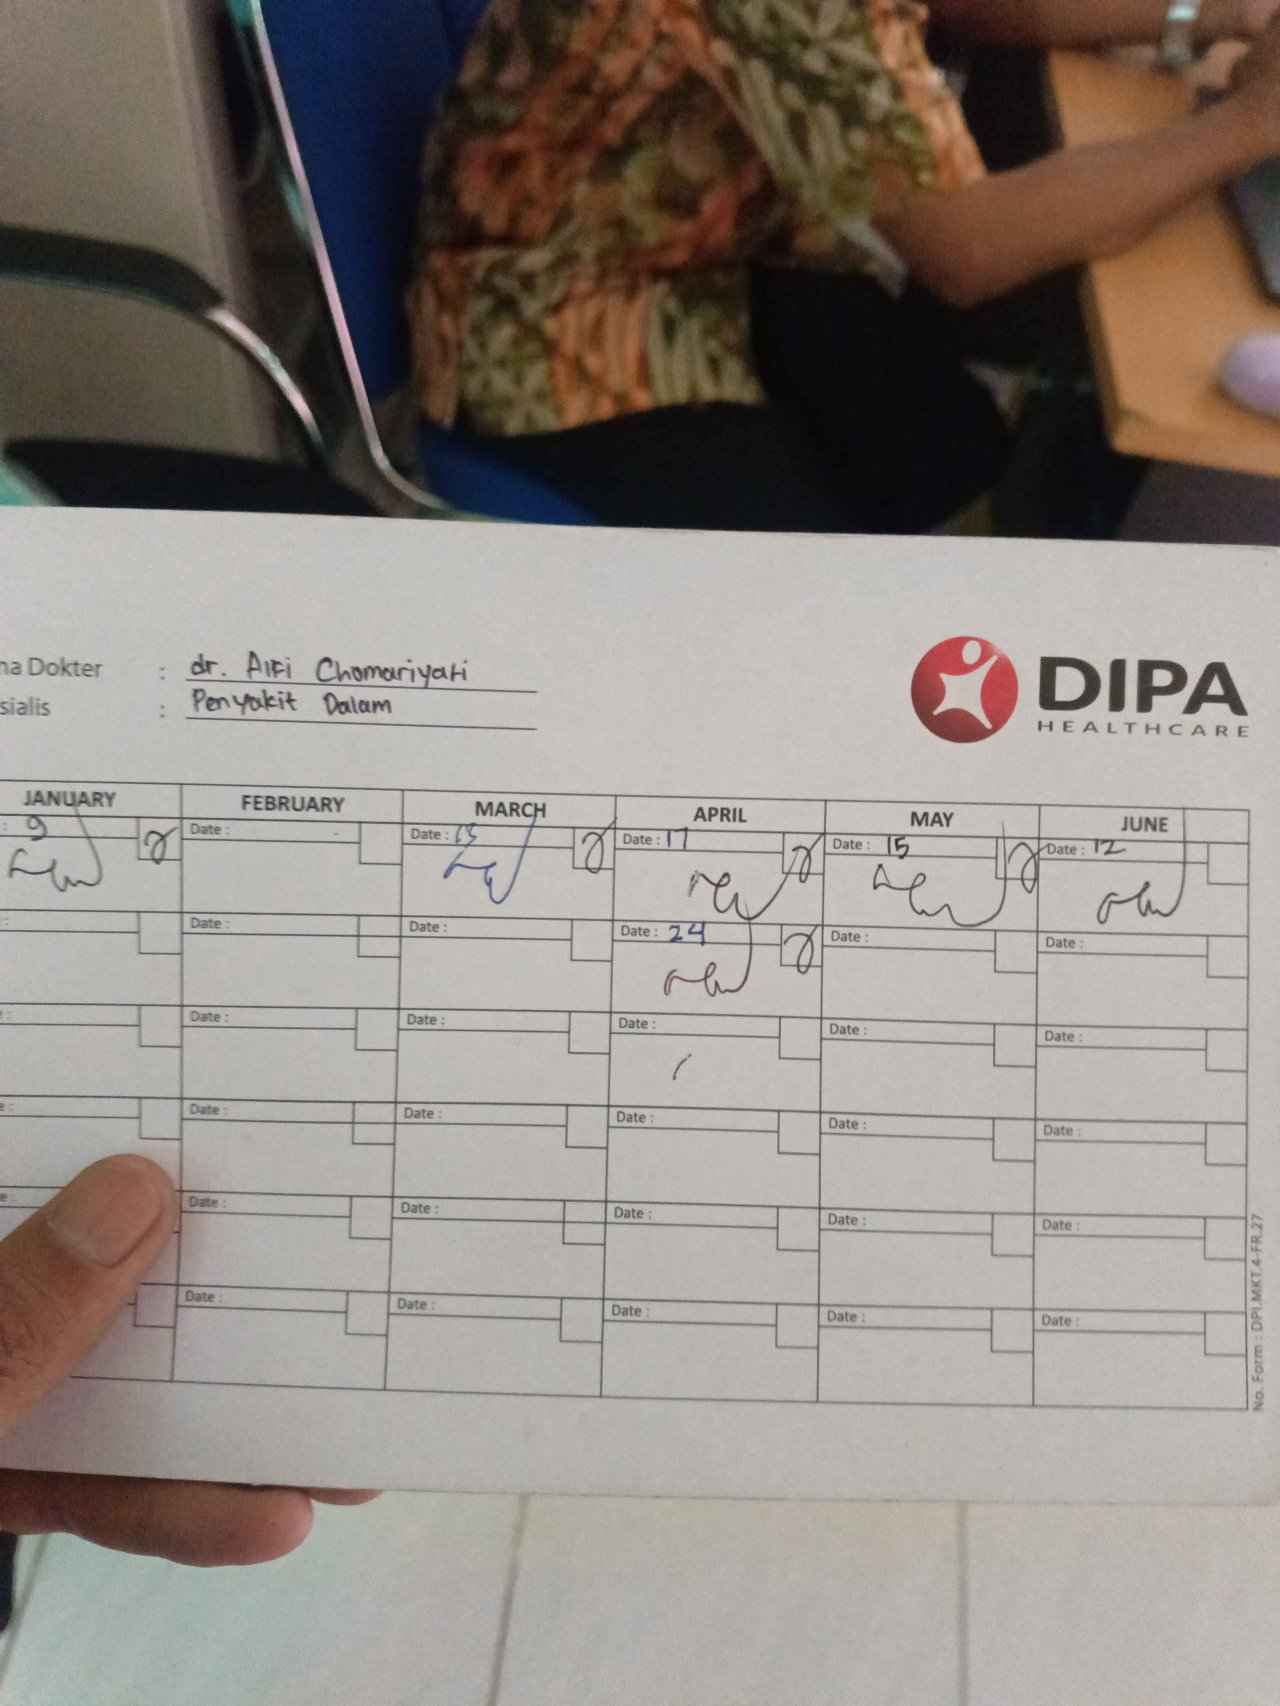 na Dokter : dr. Alfi Chomariyati
sialis : Penyakit Dalam
DIPA
HEALTHCARE
JANUARY FEBRUARY MARCH APRIL MAY JUNE
: 9 Date : Date : Date : 17 Date : 15 Date : 12
: Date : Date : Date : 24 Date : Date :
e : Date : Date : Date : Date : Date :
e : Date : Date : Date : Date : Date :
e : Date : Date : Date : Date : Date :
Date : Date : Date : Date : Date :
No. Form : DPI.MKT.4-FR.27